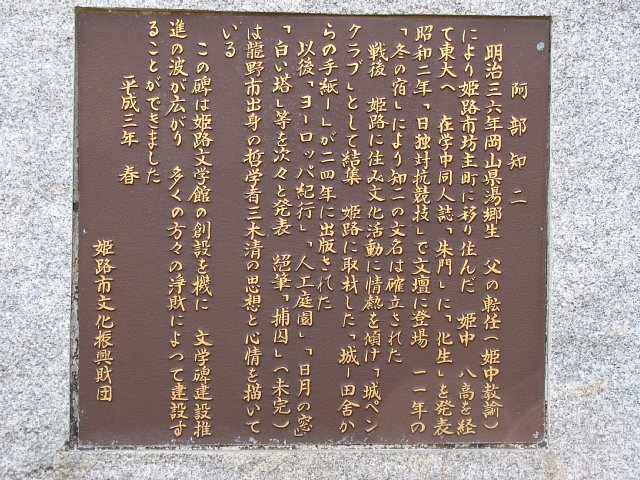 阿部知二
明治三六年岡山県湯郷生　父の転任（姫中教諭）
により姫路市坊主町に移り住んだ　姫中　八高を経
て東大へ　在学中同人誌「朱門」に「化生」を発表
昭和二年「日独対抗競技」で文壇に登場　一一年の
「冬の宿」により知二の文名は確立された
戦後　姫路に住み文化活動に情熱を傾け「城ペン
クラブ」として結集　姫路に取材した「城―田舎か
らの手紙―」が二四年に出版された
以後「ヨーロッパ紀行」「人工庭園」「日月の窓」
「白い塔」等を次々と発表　絶筆「捕囚」（未完）
は龍野市出身の哲学者三木清の思想と心情を描いて
いる
この碑は姫路文学館の創設を機に　文学碑建設推
進の波が広がり　多くの方々の浄財によつて建設す
ることができました
平成三年　春
姫路市文化振興財団